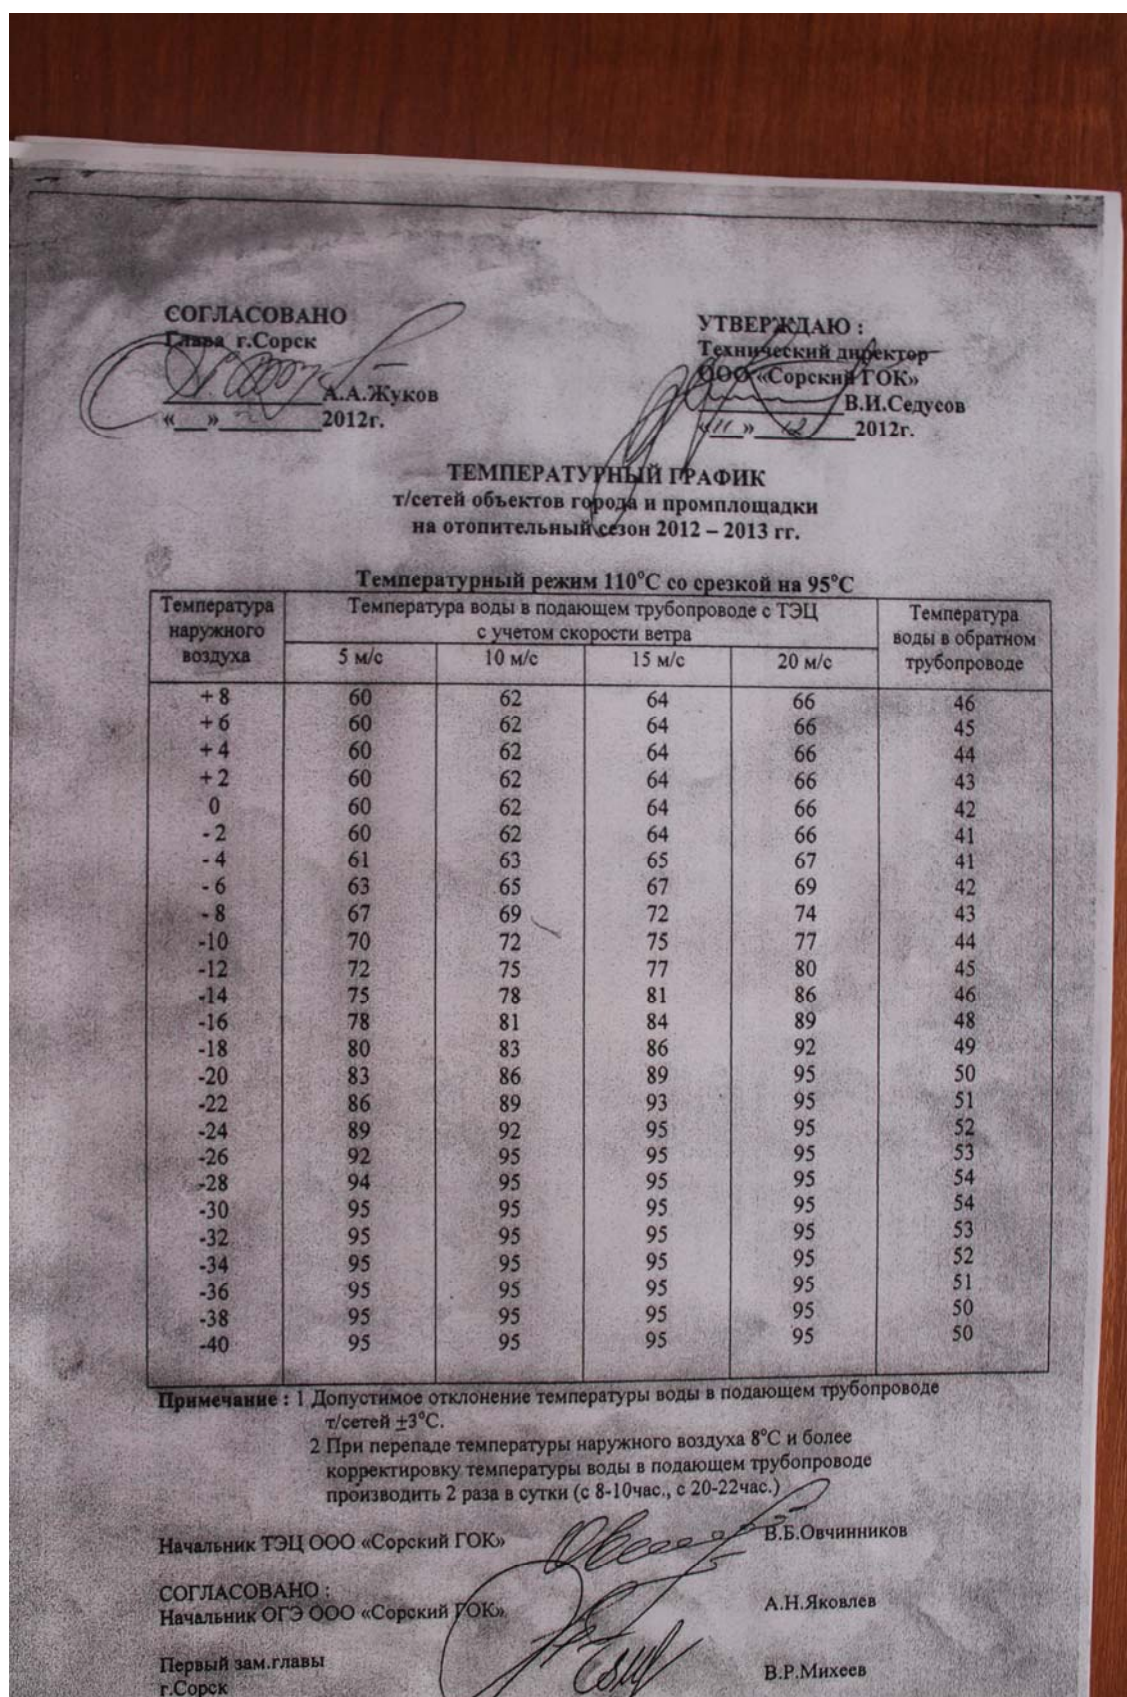 СОГЛАСОВАНО
Глава г.Сорск
А.А.Жуков
«___»__________2012г.
УТВЕРЖДАЮ :
Технический директор
ООО «Сорский ГОК»
В.И.Седусов
«11» 12 2012г.
ТЕМПЕРАТУРНЫЙ ГРАФИК
т/сетей объектов города и промплощадки
на отопительный сезон 2012 – 2013 гг.
Температурный режим 110°С со срезкой на 95°С
Температура наружного воздуха
Температура воды в подающем трубопроводе с ТЭЦ
с учетом скорости ветра
Температура воды в обратном трубопроводе
5 м/с 10 м/с 15 м/с 20 м/с
+ 8 60 62 64 66 46
+ 6 60 62 64 66 45
+ 4 60 62 64 66 44
+ 2 60 62 64 66 43
0 60 62 64 66 42
- 2 60 62 64 66 41
- 4 61 63 65 67 41
- 6 63 65 67 69 42
- 8 67 69 72 74 43
-10 70 72 75 77 44
-12 72 75 77 80 45
-14 75 78 81 86 46
-16 78 81 84 89 48
-18 80 83 86 92 49
-20 83 86 89 95 50
-22 86 89 93 95 51
-24 89 92 95 95 52
-26 92 95 95 95 53
-28 94 95 95 95 54
-30 95 95 95 95 54
-32 95 95 95 95 53
-34 95 95 95 95 52
-36 95 95 95 95 51
-38 95 95 95 95 50
-40 95 95 95 95 50
Примечание : 1 Допустимое отклонение температуры воды в подающем трубопроводе
т/сетей ±3°С.
2 При перепаде температуры наружного воздуха 8°С и более
корректировку температуры воды в подающем трубопроводе
производить 2 раза в сутки (с 8-10час., с 20-22час.)
Начальник ТЭЦ ООО «Сорский ГОК» В.Б.Овчинников
СОГЛАСОВАНО :
Начальник ОГЭ ООО «Сорский ГОК» А.Н.Яковлев
Первый зам.главы
г.Сорск В.Р.Михеев